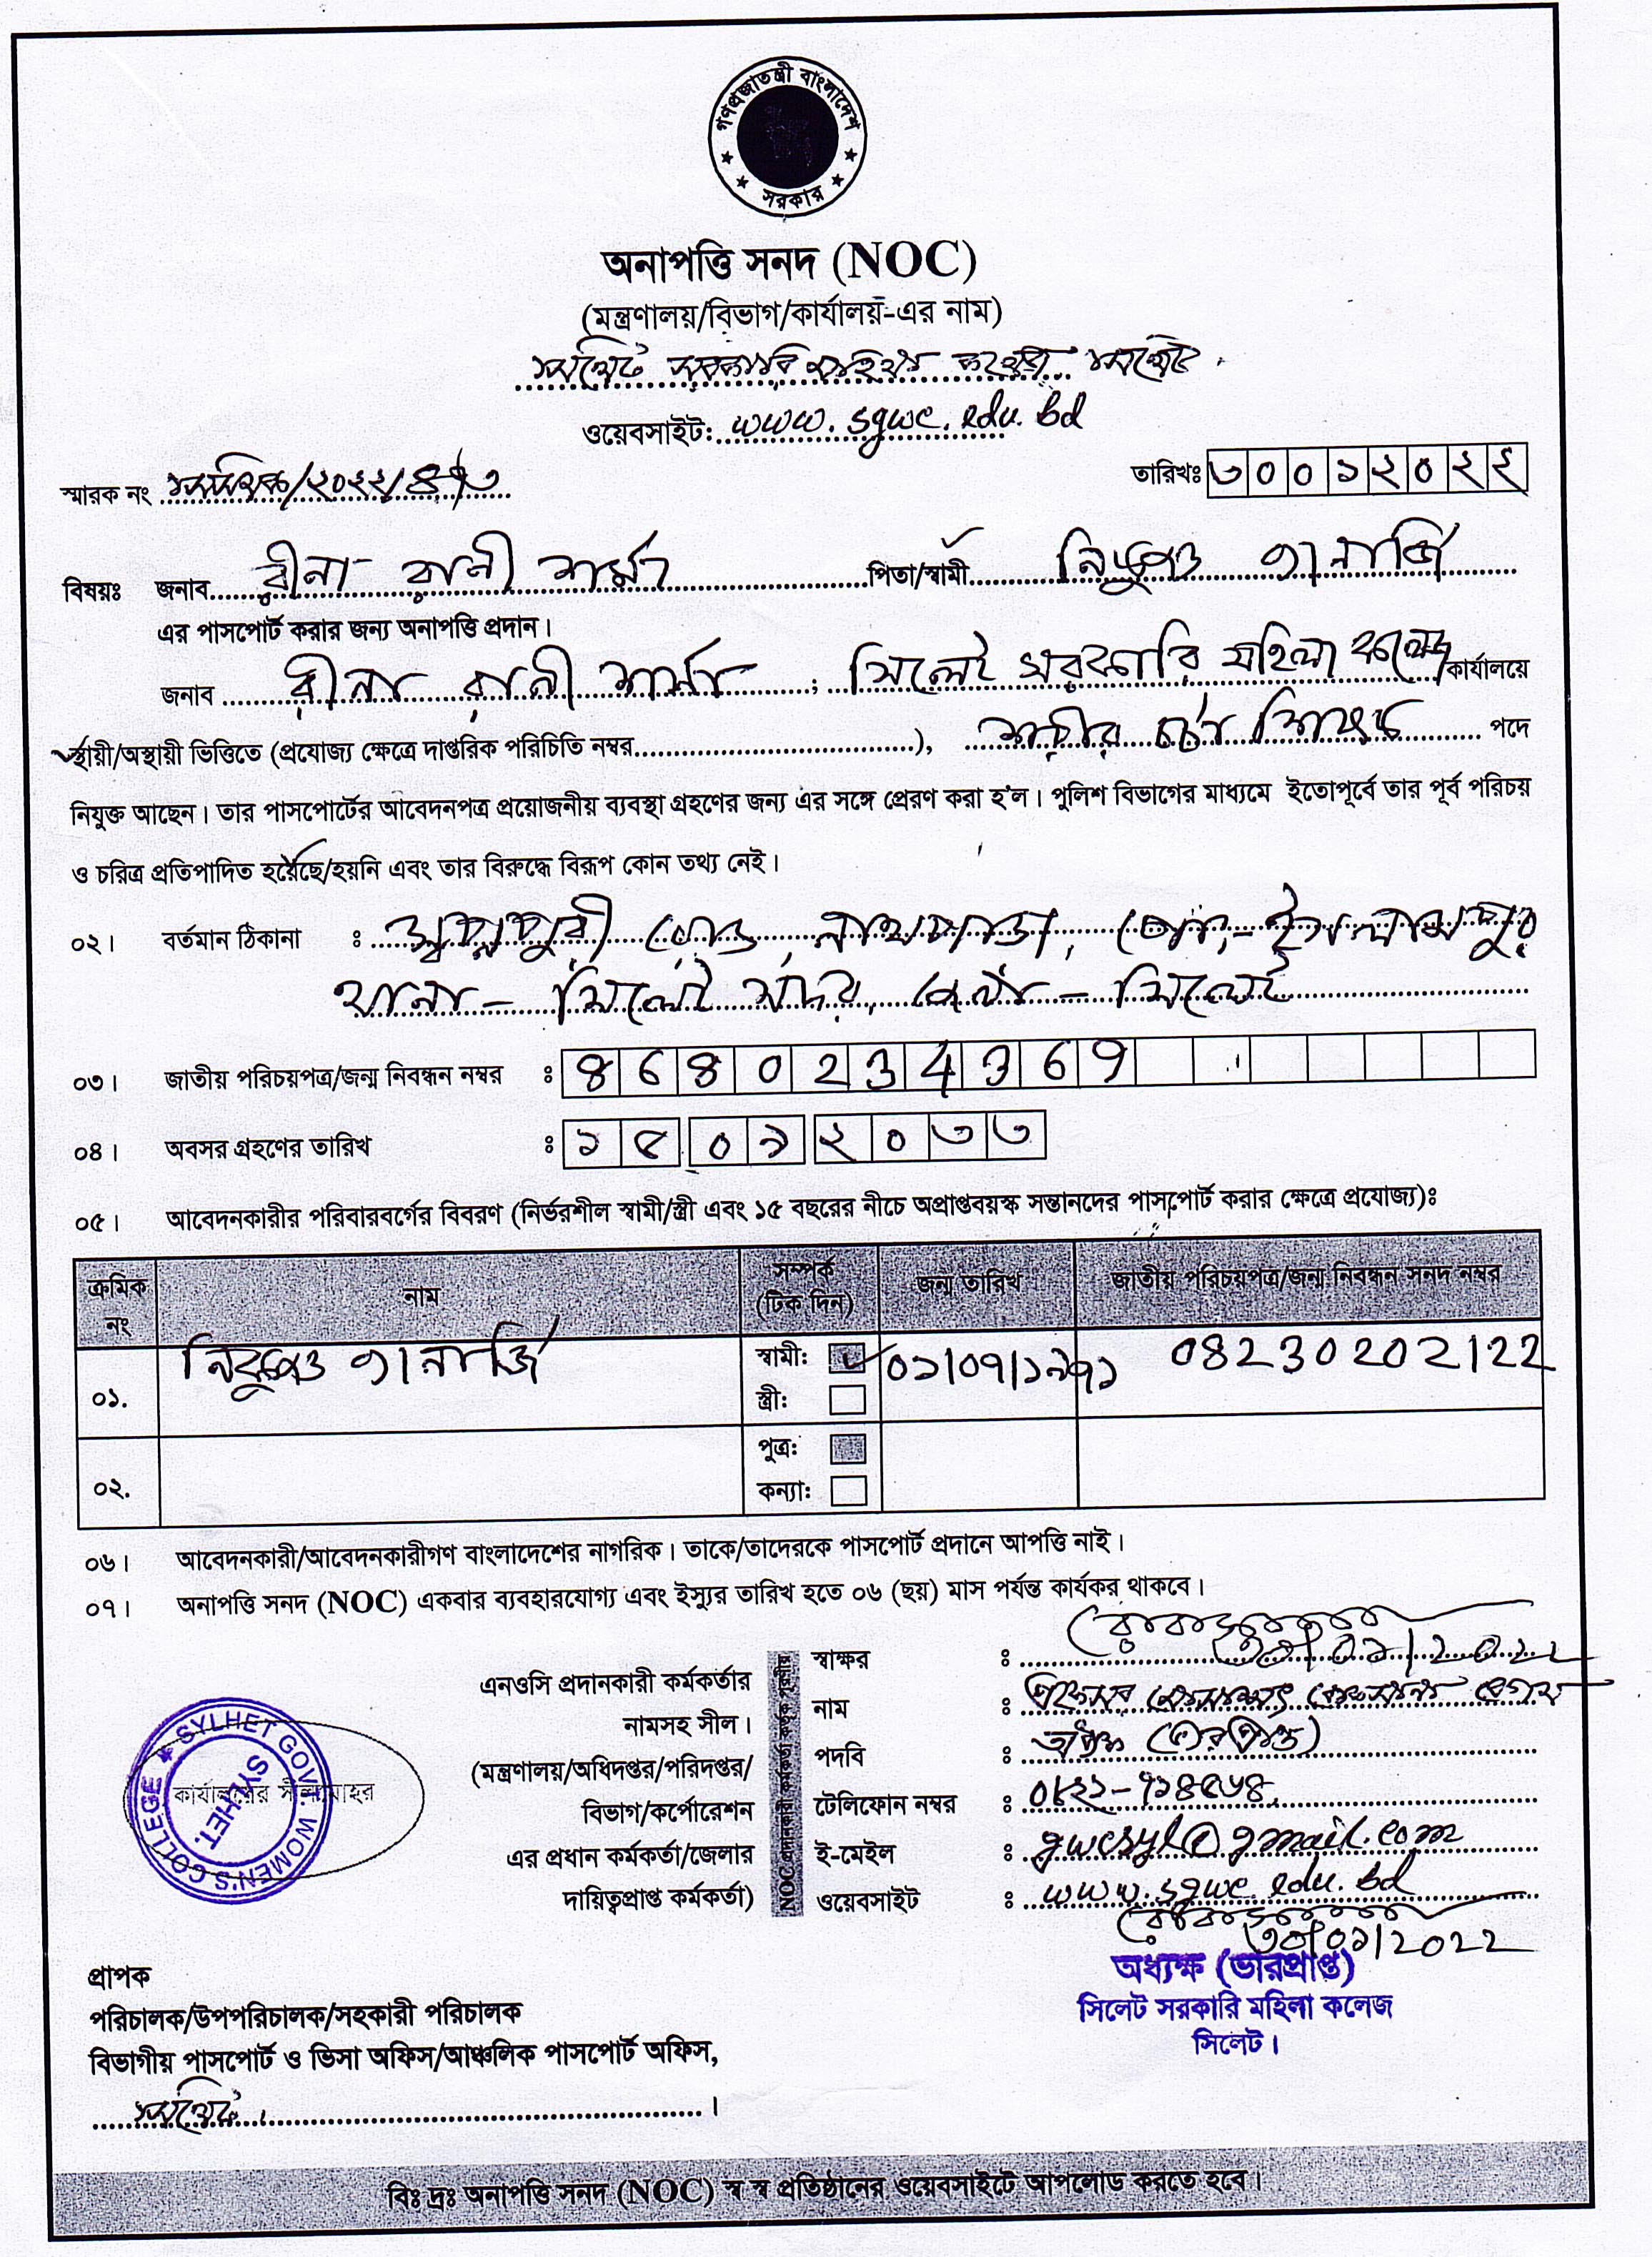 গণপ্রজাতন্ত্রী বাংলাদেশ
সরকার
অনাপত্তি সনদ (NOC)
(মন্ত্রণালয়/বিভাগ/কার্যালয়-এর নাম)
সিলেট সরকারি মহিলা কলেজ, সিলেট।
ওয়েবসাইট: www.sgwc.edu.bd
স্মারক নং
তারিখঃ ৩০০১২০২২
বিষয়ঃ জনাব রীনা রানী শর্মা পিতা/স্বামী
এর পাসপোর্ট করার জন্য অনাপত্তি প্রদান।
জনাব রীনা রানী শর্মা, সিলেট সরকারি মহিলা কলেজ কার্যালয়ে
স্থায়ী/অস্থায়ী ভিত্তিতে (প্রযোজ্য ক্ষেত্রে দাপ্তরিক পরিচিতি নম্বর), শরীর চর্চা শিক্ষক পদে
নিযুক্ত আছেন। তার পাসপোর্টের আবেদনপত্র প্রয়োজনীয় ব্যবস্থা গ্রহণের জন্য এর সঙ্গে প্রেরণ করা হ'ল। পুলিশ বিভাগের মাধ্যমে ইতোপূর্বে তার পূর্ব পরিচয়
ও চরিত্র প্রতিপাদিত হয়েছে/হয়নি এবং তার বিরুদ্ধে বিরূপ কোন তথ্য নেই।
০২। বর্তমান ঠিকানা ঃ রোড, নাথপাড়া, পো:- ইসলামপুর
থানা – সিলেট সদর, জেলা – সিলেট
০৩। জাতীয় পরিচয়পত্র/জন্ম নিবন্ধন নম্বর ঃ 8680234369
০৪। অবসর গ্রহণের তারিখ ঃ ১৫০৯২০৩৩
০৫। আবেদনকারীর পরিবারবর্গের বিবরণ (নির্ভরশীল স্বামী/স্ত্রী এবং ১৫ বছরের নীচে অপ্রাপ্তবয়স্ক সন্তানদের পাসপোর্ট করার ক্ষেত্রে প্রযোজ্য)ঃ
ক্রমিক নং নাম সম্পর্ক (টিক দিন) জন্ম তারিখ জাতীয় পরিচয়পত্র/জন্ম নিবন্ধন সনদ নম্বর
০১. স্বামী: ০১/০৭/১৯৭১ 08230202122
স্ত্রী:
০২. পুত্র:
কন্যা:
০৬। আবেদনকারী/আবেদনকারীগণ বাংলাদেশের নাগরিক। তাকে/তাদেরকে পাসপোর্ট প্রদানে আপত্তি নাই।
০৭। অনাপত্তি সনদ (NOC) একবার ব্যবহারযোগ্য এবং ইস্যুর তারিখ হতে ০৬ (ছয়) মাস পর্যন্ত কার্যকর থাকবে।
এনওসি প্রদানকারী কর্মকর্তার
নামসহ সীল।
(মন্ত্রণালয়/অধিদপ্তর/পরিদপ্তর/
বিভাগ/কর্পোরেশন
এর প্রধান কর্মকর্তা/জেলার
দায়িত্বপ্রাপ্ত কর্মকর্তা)
NOC প্রদানকারী কর্মকর্তা কর্তৃক পূরণীয়
স্বাক্ষর ঃ ৩০/০১/২০২২
নাম ঃ প্রফেসর
পদবি ঃ অধ্যক্ষ (ভারপ্রাপ্ত)
টেলিফোন নম্বর ঃ
ই-মেইল ঃ gwcsyl@gmail.com
ওয়েবসাইট ঃ www.sgwc.edu.bd
SYLHET GOVT. WOMEN'S COLLEGE
SYLHET.
কার্যালয়ের সীলমোহর
৩০/০১/2022
অধ্যক্ষ (ভারপ্রাপ্ত)
সিলেট সরকারি মহিলা কলেজ
সিলেট।
প্রাপক
পরিচালক/উপপরিচালক/সহকারী পরিচালক
বিভাগীয় পাসপোর্ট ও ভিসা অফিস/আঞ্চলিক পাসপোর্ট অফিস,
সিলেট।
বিঃ দ্রঃ অনাপত্তি সনদ (NOC) স্ব স্ব প্রতিষ্ঠানের ওয়েবসাইটে আপলোড করতে হবে।